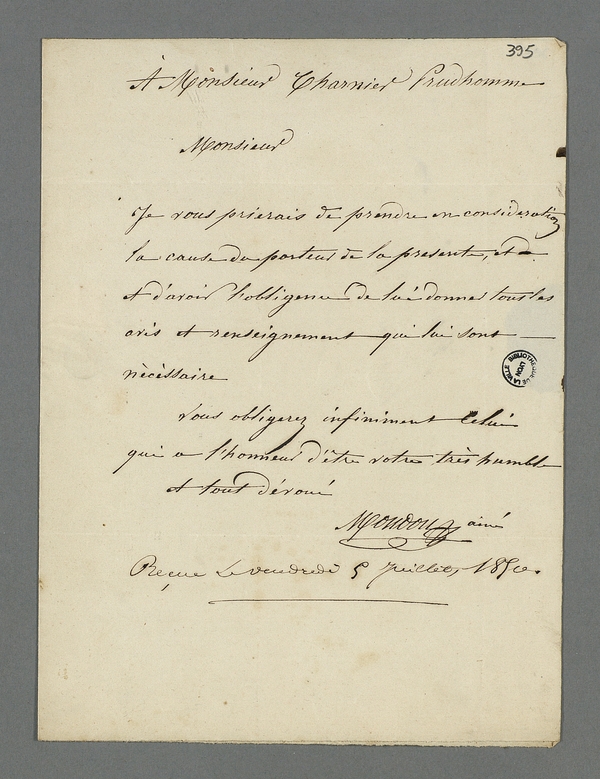 395
À Monsieur Charnier Prudhomme
Monsieur
Je vous prierais de prendre en consideration
la cause du porteur de la presente, et de
et d'avoir l'obligence de lui donner tous les
avis et renseignement qui lui sont
nècèssaire
Vous obligerez infiniment Celui
qui a l'honneur d'être votre très humble
et tout dévoué
Moudoux ainé
Reçue Le vendredi 5 Juillet, 1850.
BIBLIOTHEQUE DE LA VILLE LYON